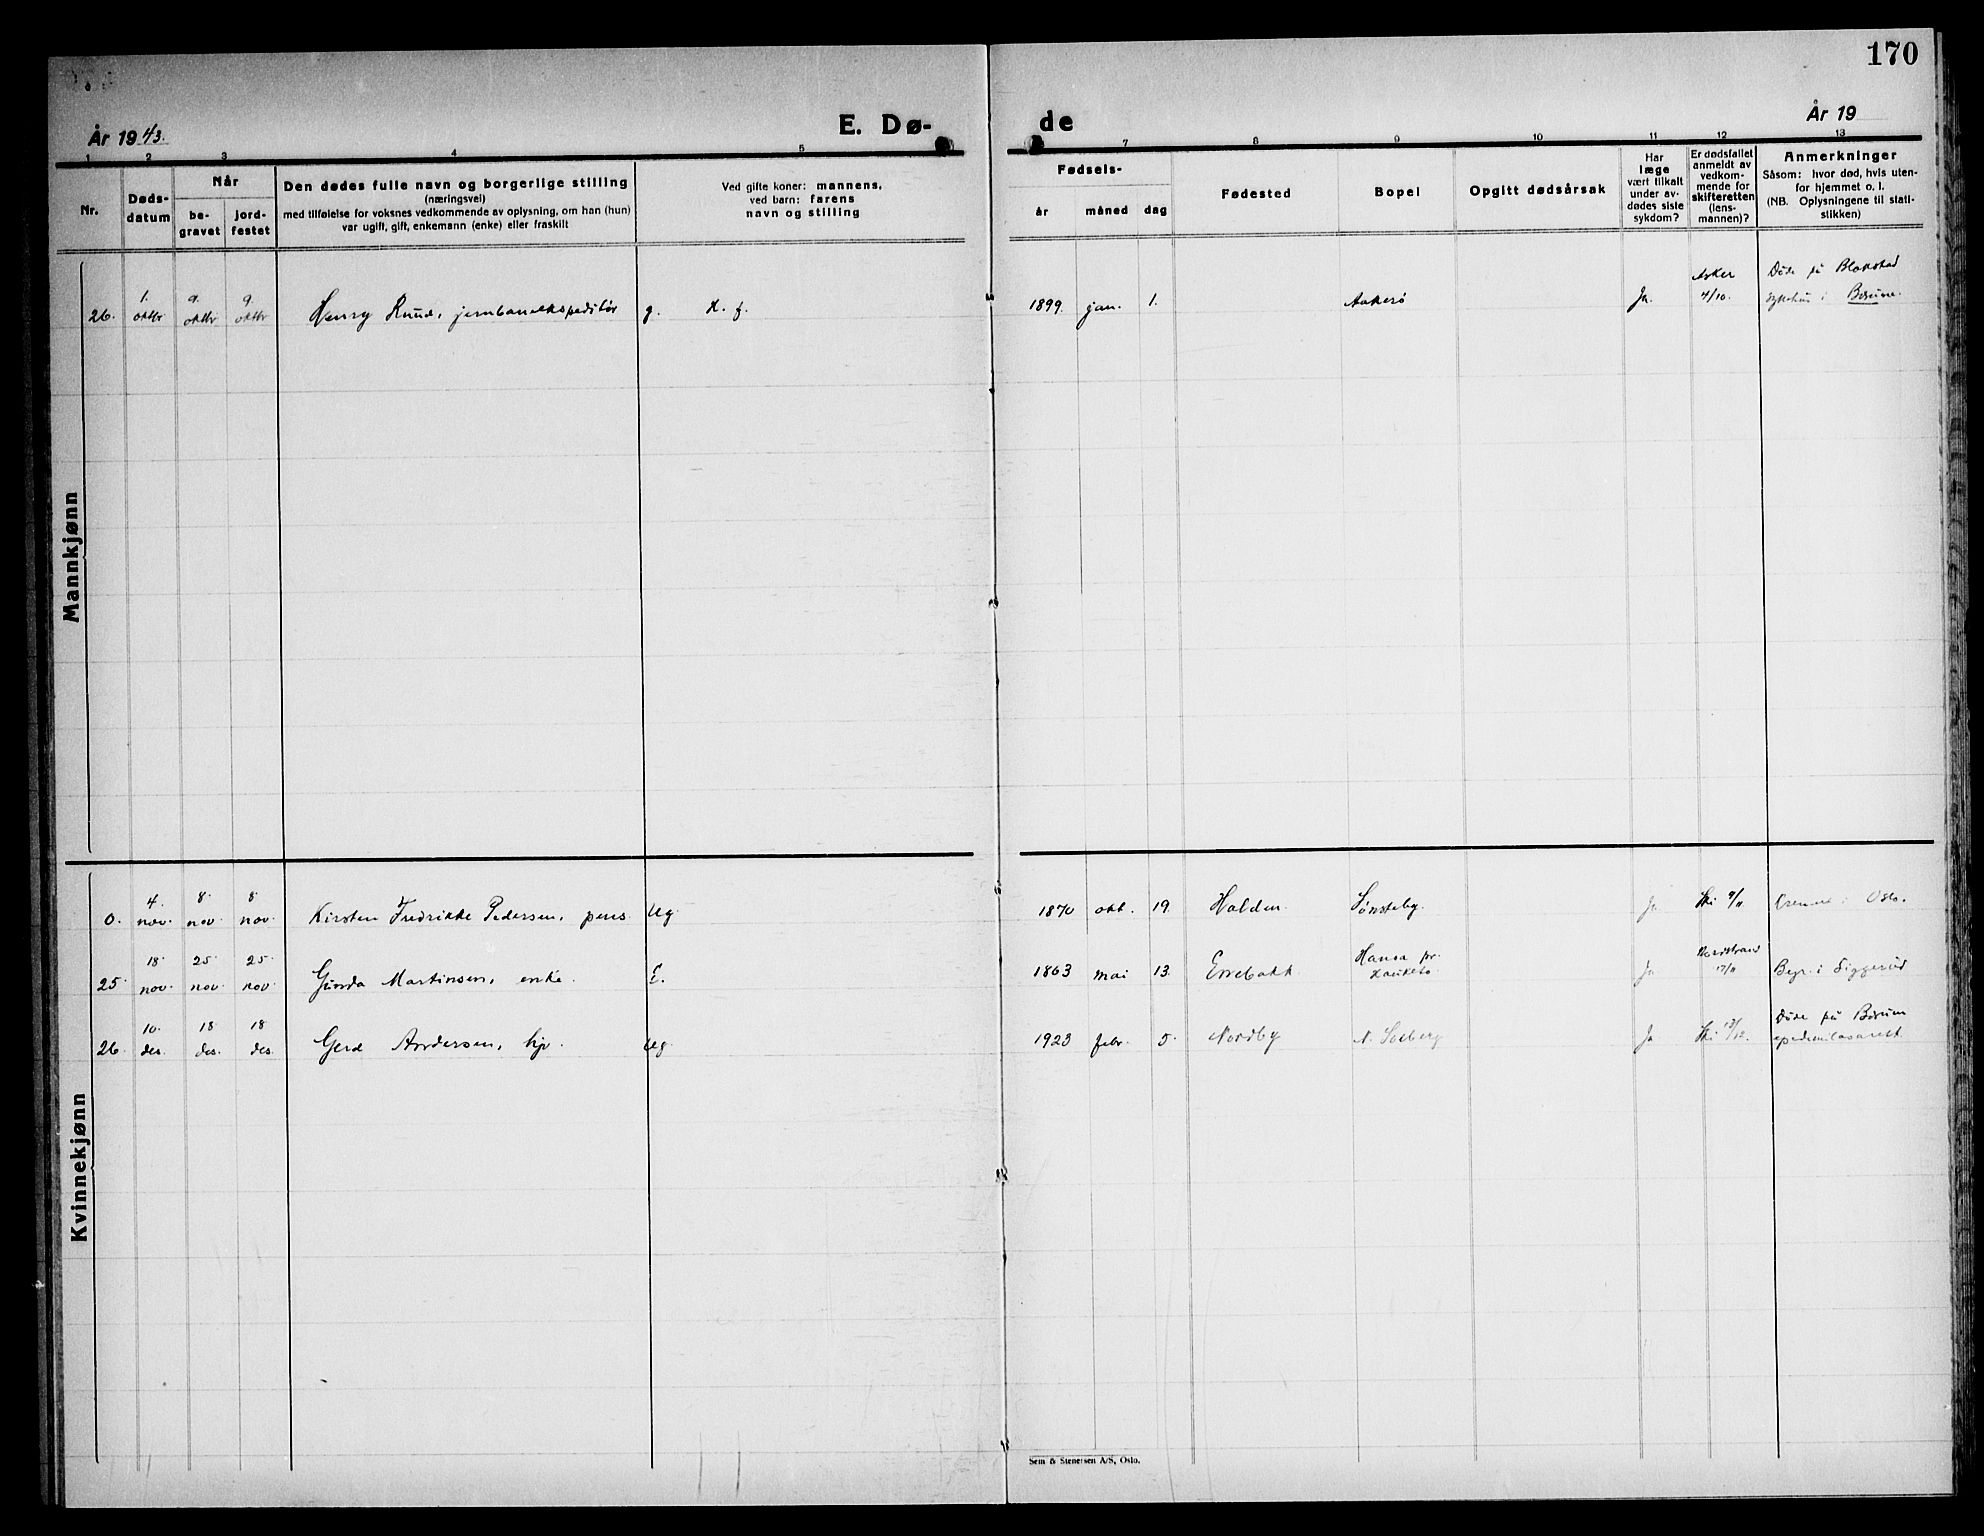 170
År 1943.
E. Dø-
de
År 19
1 2 3 4 5
7 8 9 10 11 12 13
Nr.
Døds-
datum
Når
be-
gravet
jord-
festet
Den dødes fulle navn og borgerlige stilling
(næringsvei)
med tilføielse for voksnes vedkommende av oplysning, om han (hun)
var ugift, gift, enkemann (enke) eller fraskilt
Ved gifte koner: mannens,
ved barn: farens
navn og stilling
Fødsels-
år måned dag
Fødested
Bopel
Opgitt dødsårsak
Har
læge
vært tilkalt
under av-
dødes siste
sykdom?
Er dødsfallet
anmeldt av
vedkom-
mende for
skifteretten
(lens-
mannen)?
Anmerkninger
Såsom: hvor død, hvis uten-
for hjemmet o. l.
(NB. Oplysningene til stati-
stikken)
Mannkjønn
1. 9. 9. Asker Døde på Blakstad
26. oktbr oktbr oktbr Henry Ruud, jernbaneekspeditør g. 1899. jan. 1. Ja. 4/10. sykehus i Bærum.
Kvinnekjønn
4. 8. 8.
0. nov. nov. nov. Kirsten Fredrikke Pedersen, pens. Ug. 1870 okt. 19. Halden Sønsteby. Ja Ski 9/11 Kremert i Oslo.
18. 25. 25. Hansa pr. Nordstrand
25. nov. nov. nov. Gunda Martinsen, enke. E. 1863 mai 13. Hauketo Ja 17/11 Begr. i Siggerud
10. 18 18 Døde på Bærum
26. des. des. des. Gerd Andersen, hjv. Ug. 1923 febr. 5. Nordby N. Solberg Ja Ski 13/12. epedemilasarett.
Sem & Stenersen A/S, Oslo.